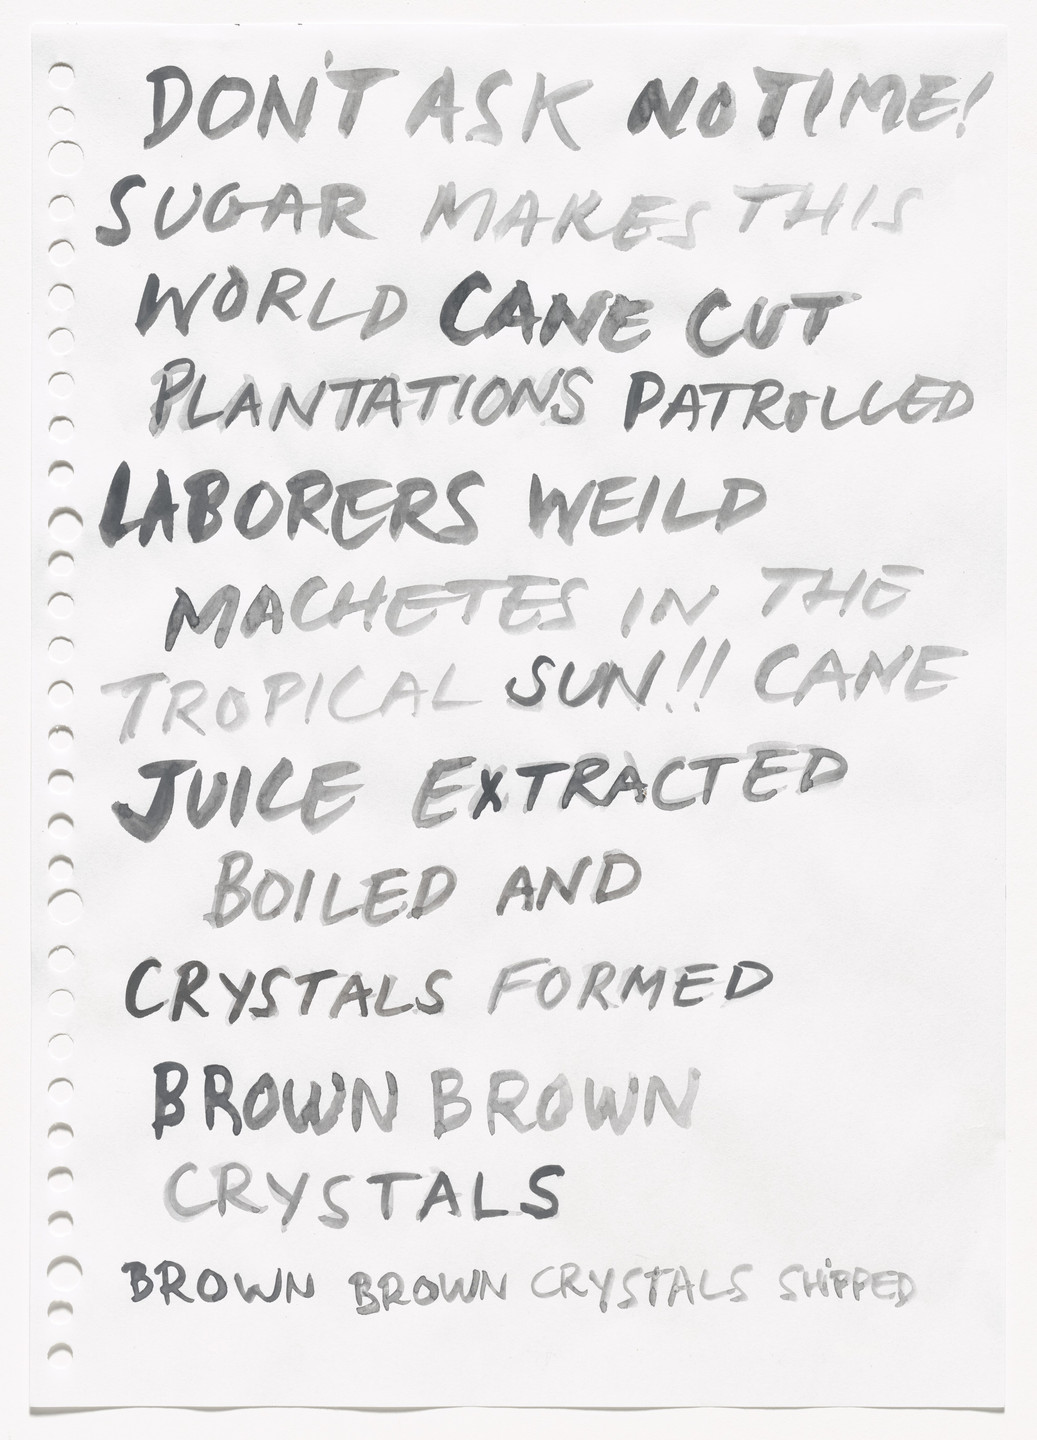 DON'T ASK NO TIME!
SUGAR MAKES THIS
WORLD CANE CUT
PLANTATIONS PATROLLED
LABORERS WEILD
MACHETES IN THE
TROPICAL SUN!! CANE
JUICE EXTRACTED
BOILED AND
CRYSTALS FORMED
BROWN BROWN
CRYSTALS
BROWN BROWN CRYSTALS SHIPPED